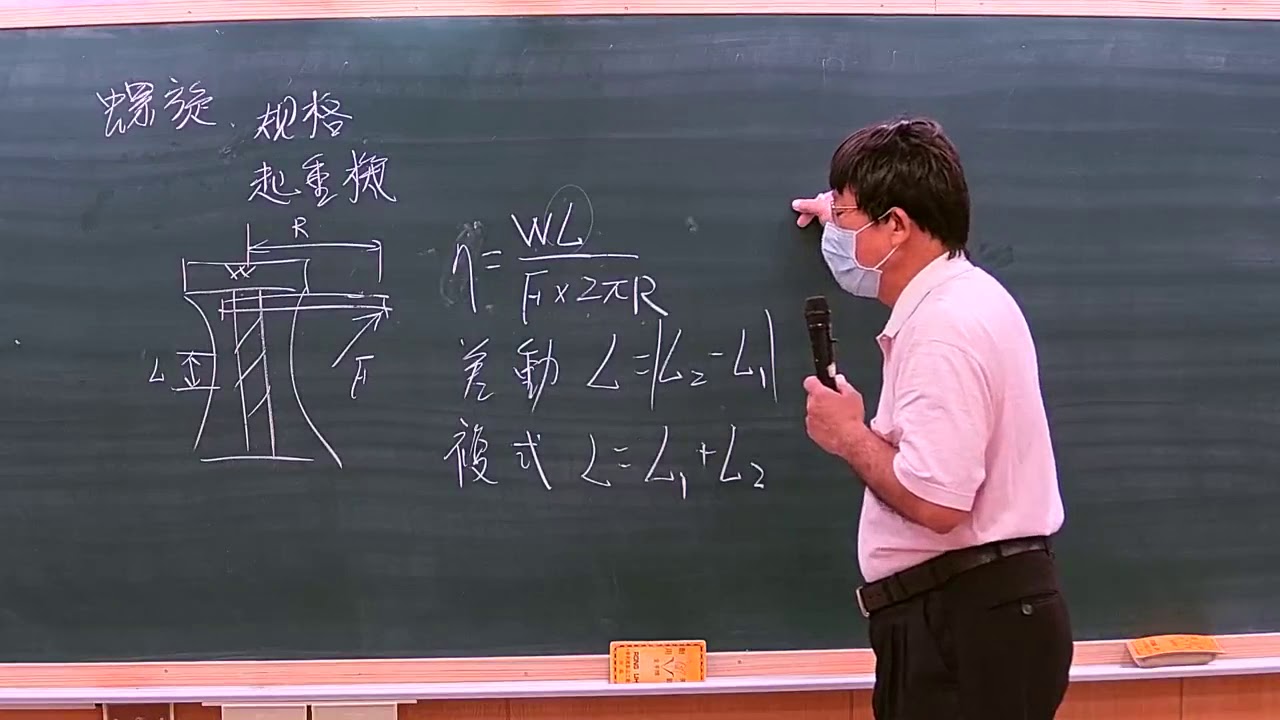 螺旋、規格
起重機
R
W
L
F
η = WL / F×2πR
差動 L=|L₂-L₁|
複式 L=L₁+L₂